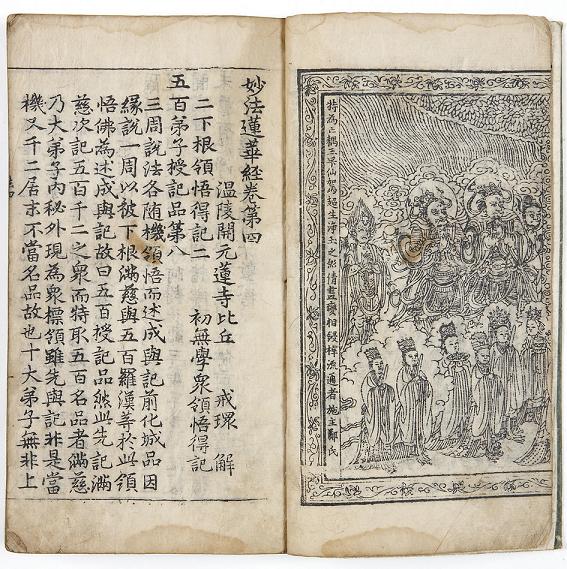 特為亡耦仙駕超生淨土之邦變相鋟梓流通者 施主鄭氏
妙法蓮華經卷第四
温陵開元蓮寺比丘 戒環 解
二下根領悟得記二 初無學衆領悟得記
五百弟子授記品第八
三周說法各随機領悟而述成與記前化城品因
縁說一周以被下根滿慈與五百羅漢等於此領
悟佛為述成與記故曰五百授記品然此先記滿
慈次記五百千二之衆而特取五百名品者滿慈
乃大弟子内秘外現為衆標領雖先與記非是當
機又千二居末不當名品故也十大弟子無非上